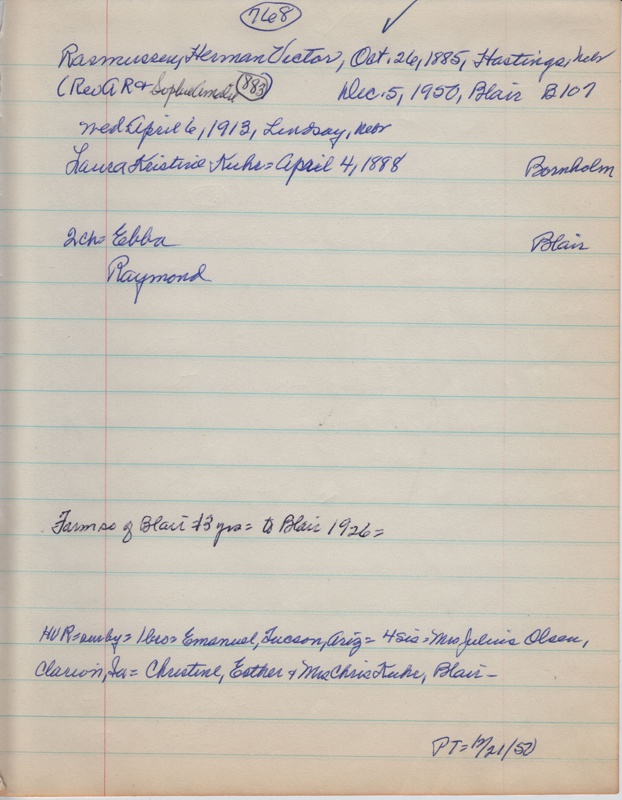 768
Rasmussen, Herman Victor, Oct. 26, 1885, Hastings, Nebr
(Rev A R & Sophie 883 Dec. 5, 1950, Blair B107
wed April 6, 1913, Lindsay, Nebr
Laura Kristine Kuhr = April 4, 1888 Bornholm
2ch= Ebba Blair
Raymond
Farm so of Blair 13 yrs = to Blair 1926=
HVR= = 1bro= Emanuel, Tucson, Ariz = 4sis = Mrs Julius Olsen,
Clarion, Ia = Christine, Esther & Mrs Chris Kuhr, Blair -
PT= 12/21/50